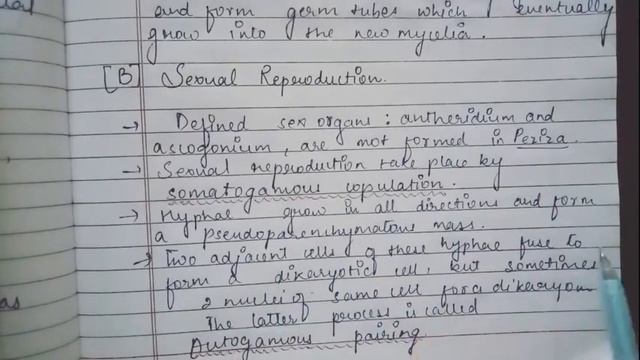 and form germ tubes which eventually
grow into the new mycelia.
[B] Sexual Reproduction.
→ Defined sex organs : antheridium and
ascogonium, are not formed in Peziza.
→ Sexual reproduction take place by
somatogamous copulation.
→ Hyphae grow in all directions and form
a pseudoparenchymatous mass.
→ Two adjacent cells of these hyphae fuse to
form a dikaryotic cell, but sometimes
2 nuclei of same cell form dikaryon
The latter process is called
Autogamous pairing
as